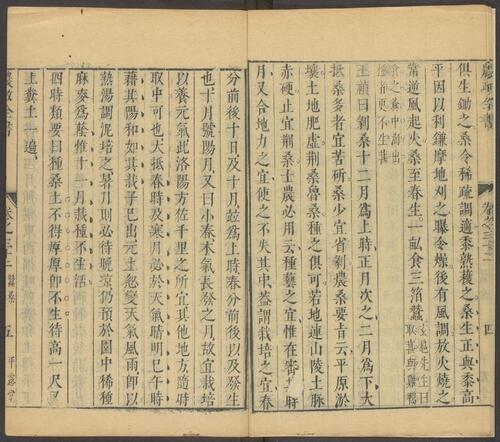 農政全書
卷之三十二
四
俱生鋤之桑令稀疏調適黍熟穫之桑生正與黍高
平因以利鎌摩地刈之曝令燥後有風調放火燒之
常逆風起火桑至春生一畝食三箔蠶玄扈先生曰
取葚與雞鴨
食之糞中淘出
種者更不生葚
王禎曰剝桑十二月爲上時正月次之二月爲下大
抵桑多者宜苦斫桑少宜省剝農桑要旨云平原淤
壤土地肥虛荆桑魯桑種之俱可若地連山陵土脉
赤硬止宜荆桑士農必用云種藝之宜惟在審其時
月又合地力之宜使之不失其中蓋謂栽培之宜春
分前後十日及十月並爲上時春分前後以及發生
也十月號陽月又曰小春木氣長發之月故宜栽培
以養元氣此洛陽方佐千里之所宜其他地方隨時
取中可也大抵春時及寒月必於天氣晴明巳午時
藉其陽和如其栽子已出元土忽變天氣風雨即以
熱湯調泥培之暑月則必待晚涼仍預於園中稀種
麻麥爲蔭惟十一月栽種不生活
四時類要曰種桑土不得厚厚即不生待高一尺又
上糞土一遍
農政全書
卷之三十二
蠶桑
五
平露堂